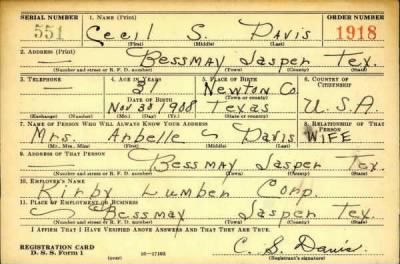 SERIAL NUMBER 1. NAME (Print) ORDER NUMBER
551 Cecil S. Davis 1918
(First) (Middle) (Last)
2. ADDRESS (Print)
— Bessmay Jasper Tex.
(Number and street or R. F. D. number) (Town) (County) (State)
3. TELEPHONE 4. AGE IN YEARS 5. PLACE OF BIRTH 6. COUNTRY OF CITIZENSHIP
— 31 Newton Co.
DATE OF BIRTH (Town or county)
Nov 30 1908 Texas U.S.A.
(Exchange) (Number) (Mo.) (Day) (Yr.) (State or country)
7. NAME OF PERSON WHO WILL ALWAYS KNOW YOUR ADDRESS 8. RELATIONSHIP OF THAT PERSON
Mrs. Arbelle S Davis WIFE
(Mr., Mrs., Miss) (First) (Middle) (Last)
9. ADDRESS OF THAT PERSON
— Bessmay Jasper Tex.
(Number and street or R. F. D. number) (Town) (County) (State)
10. EMPLOYER'S NAME
Kirby Lumber Corp.
11. PLACE OF EMPLOYMENT OR BUSINESS
Bessmay Jasper Tex.
(Number and street or R. F. D. number) (Town) (County) (State)
I AFFIRM THAT I HAVE VERIFIED ABOVE ANSWERS AND THAT THEY ARE TRUE.
REGISTRATION CARD C. S. Davis
D. S. S. Form 1 16—17105 (Registrant's signature)